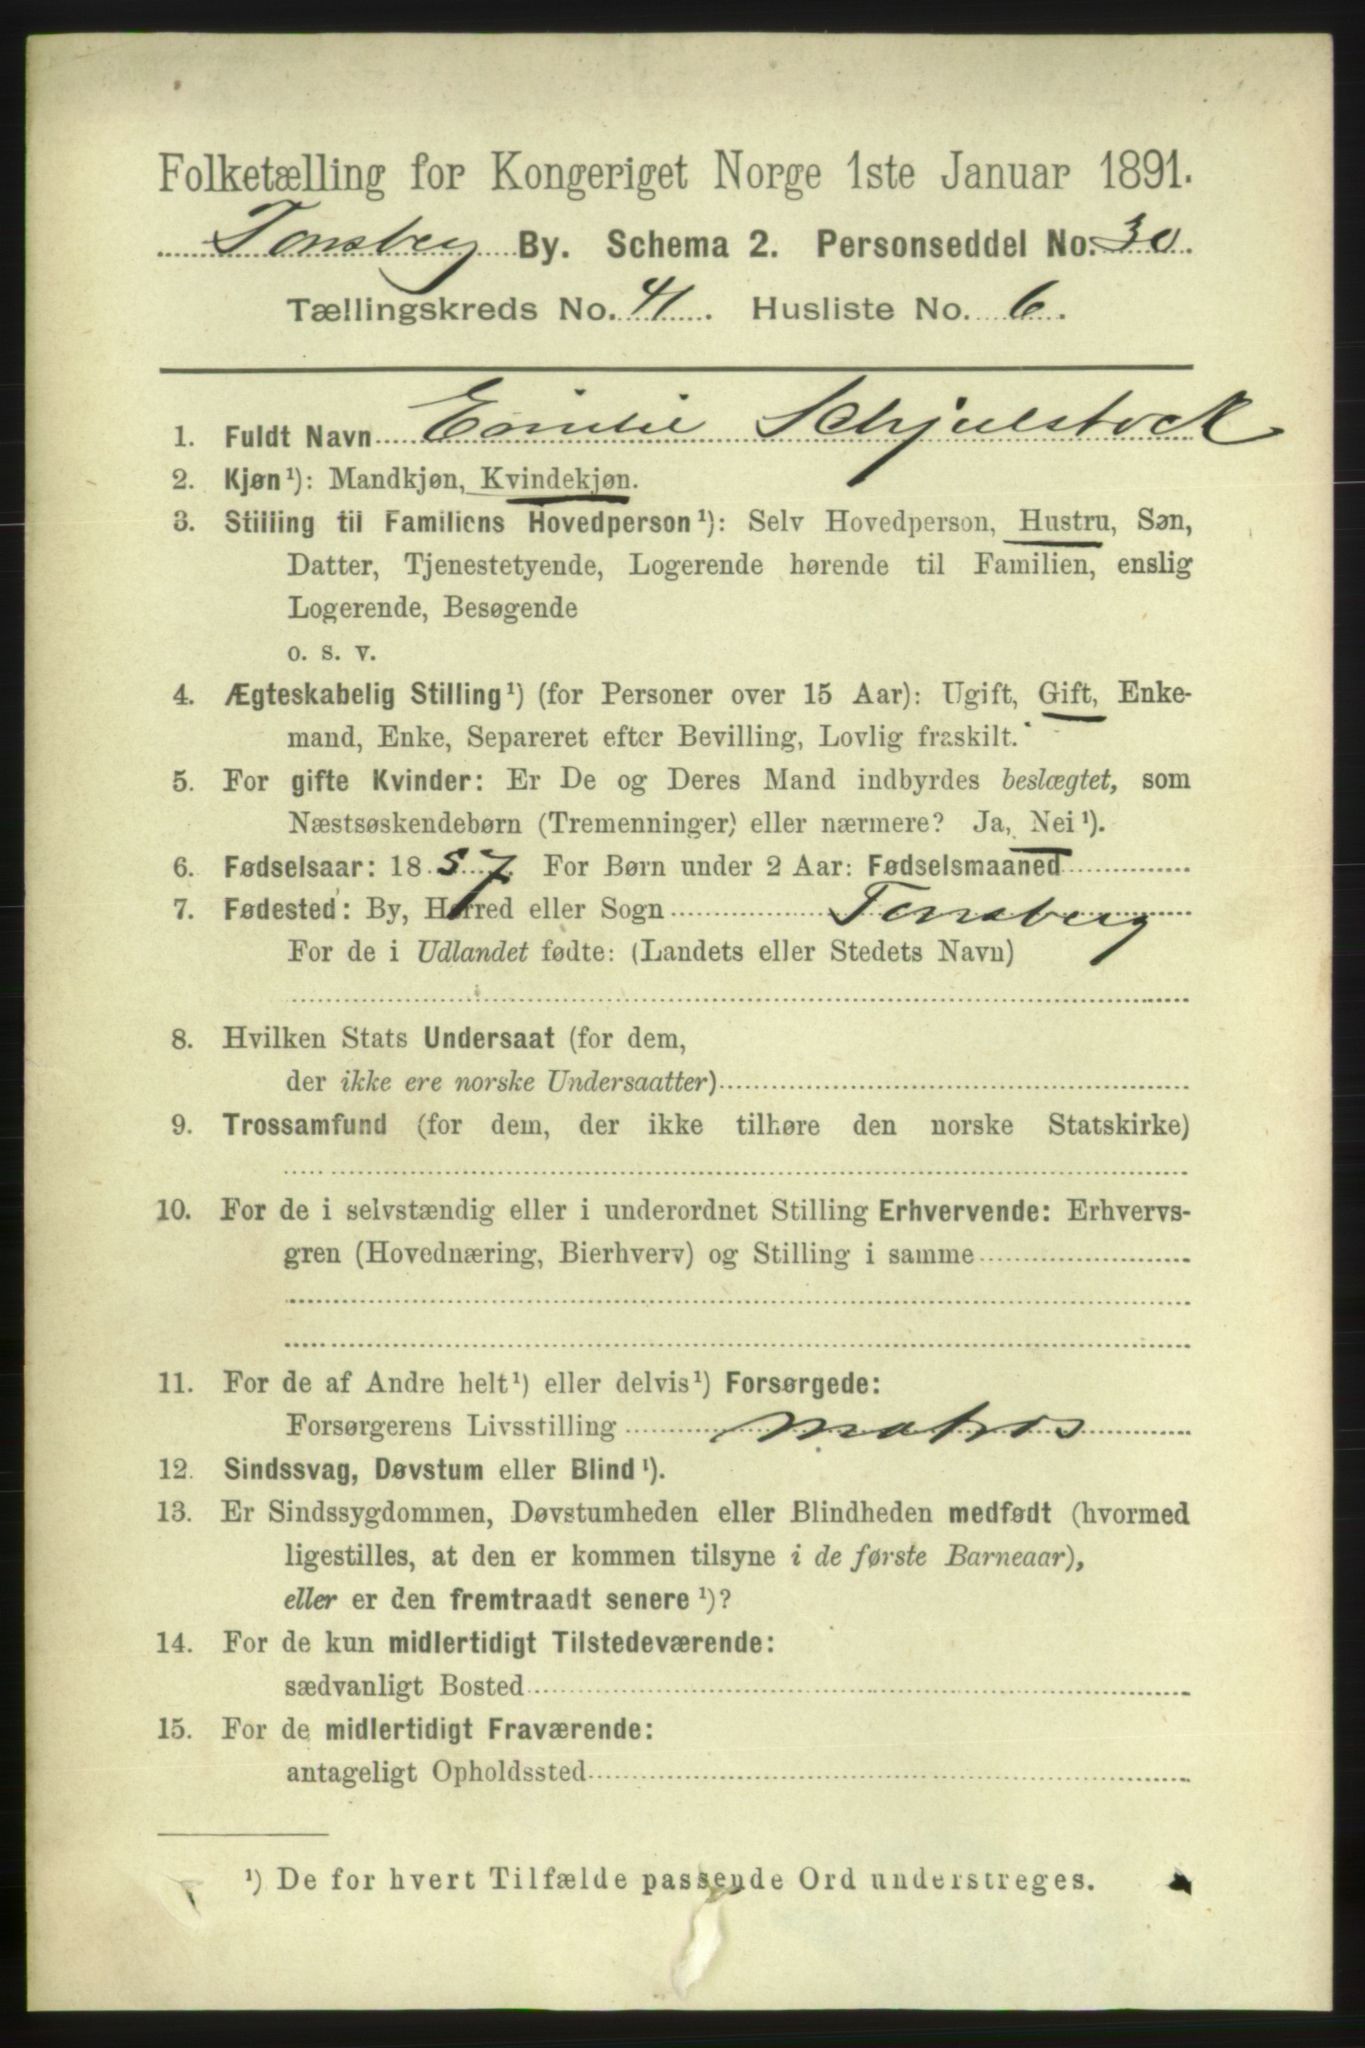 Folketælling for Kongeriget Norge 1ste Januar 1891.
Tønsberg By. Schema 2. Personseddel No. 30
Tællingskreds No. 41. Husliste No. 6.
1. Fuldt Navn Emilie Schjelstock
2. Kjøn¹): Mandkjøn, Kvindekjøn.
3. Stilling til Familiens Hovedperson¹): Selv Hovedperson, Hustru, Søn,
Datter, Tjenestetyende, Logerende hørende til Familien, enslig
Logerende, Besøgende
o. s. v.
4. Ægteskabelig Stilling¹) (for Personer over 15 Aar): Ugift, Gift, Enke-
mand, Enke, Separeret efter Bevilling, Lovlig fraskilt.
5. For gifte Kvinder: Er De og Deres Mand indbyrdes beslægtet, som
Næstsøskendebørn (Tremenninger) eller nærmere? Ja, Nei¹).
6. Fødselsaar: 1857. For Børn under 2 Aar: Fødselsmaaned
7. Fødested: By, Herred eller Sogn Tønsberg
For de i Udlandet fødte: (Landets eller Stedets Navn)
8. Hvilken Stats Undersaat (for dem,
der ikke ere norske Undersaatter)
9. Trossamfund (for dem, der ikke tilhøre den norske Statskirke)
10. For de i selvstændig eller i underordnet Stilling Erhvervende: Erhvervs-
gren (Hovednæring, Bierhverv) og Stilling i samme
11. For de af Andre helt¹) eller delvis¹) Forsørgede:
Forsørgerens Livsstilling Matros
12. Sindssvag, Døvstum eller Blind¹).
13. Er Sindssygdommen, Døvstumheden eller Blindheden medfødt (hvormed
ligestilles, at den er kommen tilsyne i de første Barneaar),
eller er den fremtraadt senere¹)?
14. For de kun midlertidigt Tilstedeværende:
sædvanligt Bosted
15. For de midlertidigt Fraværende:
antageligt Opholdssted
¹) De for hvert Tilfælde passende Ord understreges.